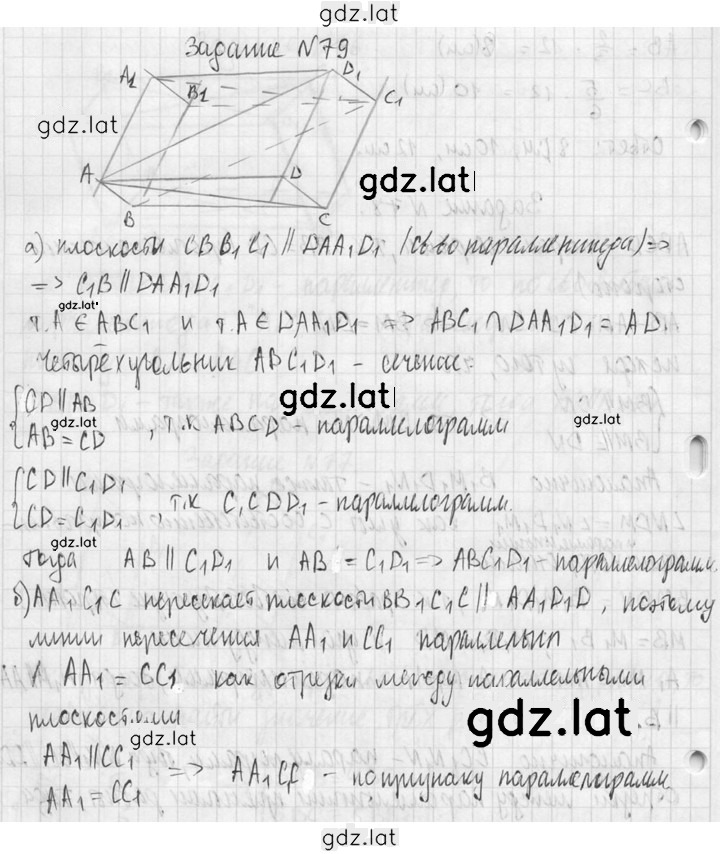 gdz.lat
Задание N79
A1 D1
B1 C1
gdz.lat
gdz.lat
A D
B C
а) плоскости CBB1C1 // DAA1D1 (св-во параллепипеда) =>
=> C1B // DAA1D1
gdz.lat
т.A ∈ ABC1 и т.A ∈ DAA1D1 => ABC1 ∩ DAA1D1 = AD1
четырёхугольник ABC1D1 – сечение.
gdz.lat
CD // AB
gdz.lat gdz.lat
AB = CD , т.к ABCD – параллелограмм
CD // C1D1
CD = C1D1 , т.к C1CDD1 – параллелограмм.
gdz.lat
тогда AB // C1D1 и AB = C1D1 => ABC1D1 параллелограмм.
б) AA1C1C пересекает плоскости BB1C1C // AA1D1D, поэтому
линии пересечения AA1 и CC1 параллельны
и AA1 = CC1 как отрезки между параллельными
плоскостями
gdz.lat
gdz.lat
AA1 // CC1
AA1 = CC1 => AA1CC1 – по признаку параллелограмм
gdz.lat
gdz.lat